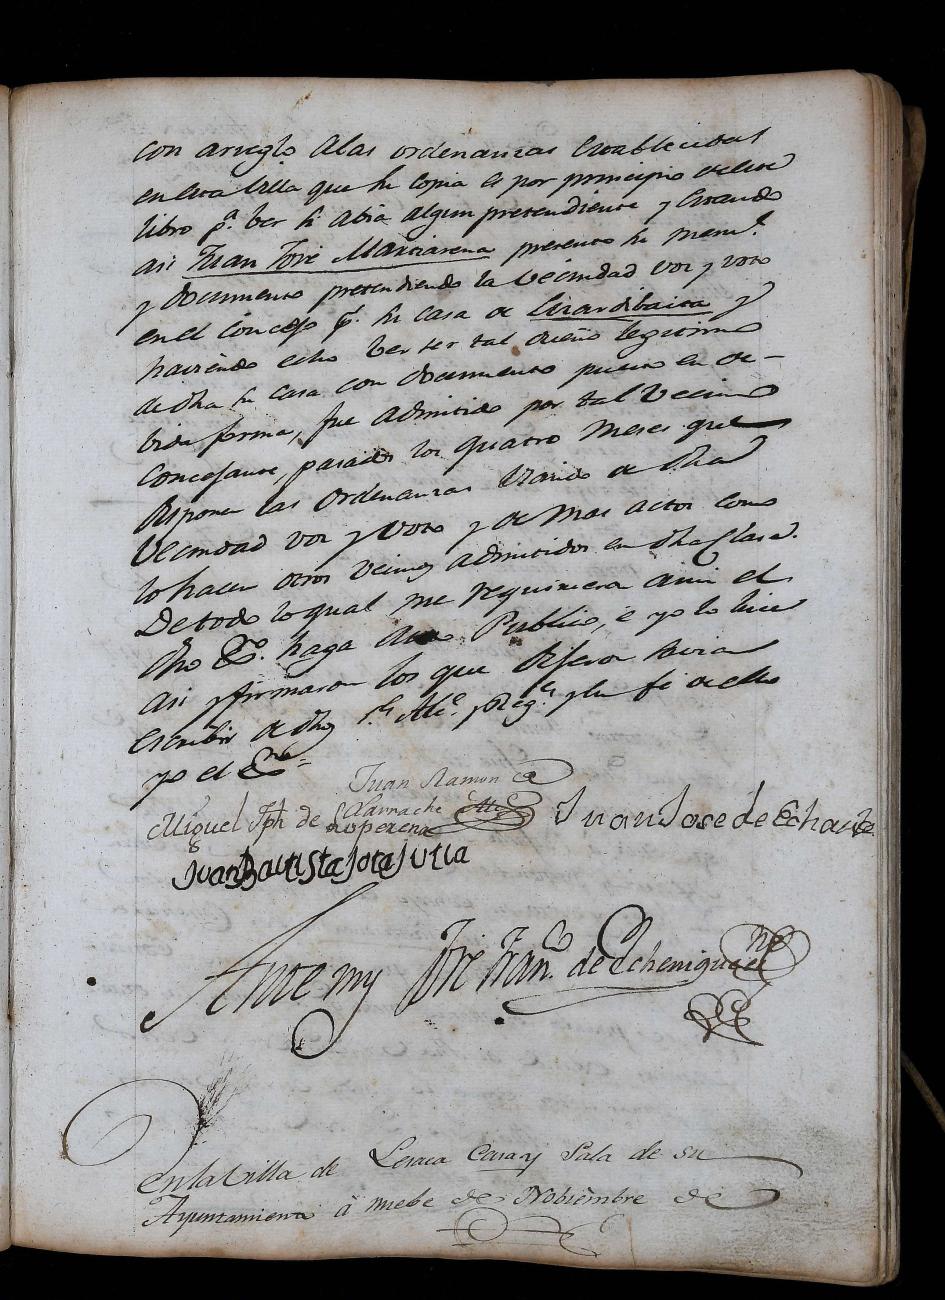 con arreglo alas ordenanzas establecidas
en esta Villa que su copia es por principio de este
libro p.ª ber si abia algun pretendiente y estando
asi Juan Jose Martiarena presento su mem.l
y documento pretendiendo la vecindad voz y voto
en el Concejo p.r su casa de y
haviendo echo ber ser tal dueño legitimo
de dha su casa con documento puesto en de-
bida forma, fue admitido por tal Vecino
Concejante, pasados los quatro meses que
disponen las ordenanzas usando de dha
Vecindad voz y voto y de mas actos como
lo hacen otros vecinos admitidos en dha Clase.
De todo lo qual me requirieron a mi el
dho Es.no haga auto Publico, e yo lo hice
asi y firmaron los que dijeron savian
escribir de dhos S.res Alc.e y Reg.s y en fe de ello
yo el Es.no =
Juan Ramon de
Miguel Jph de Marnache Juan Jose de Echa
Loperena
Juan Bautista Sotajulia
Ante my Jose Fran.co de Echenique es.no
En la Villa de Lesaca Casa y Sala de su
Ayuntamiento â nuebe de Nobiembre de